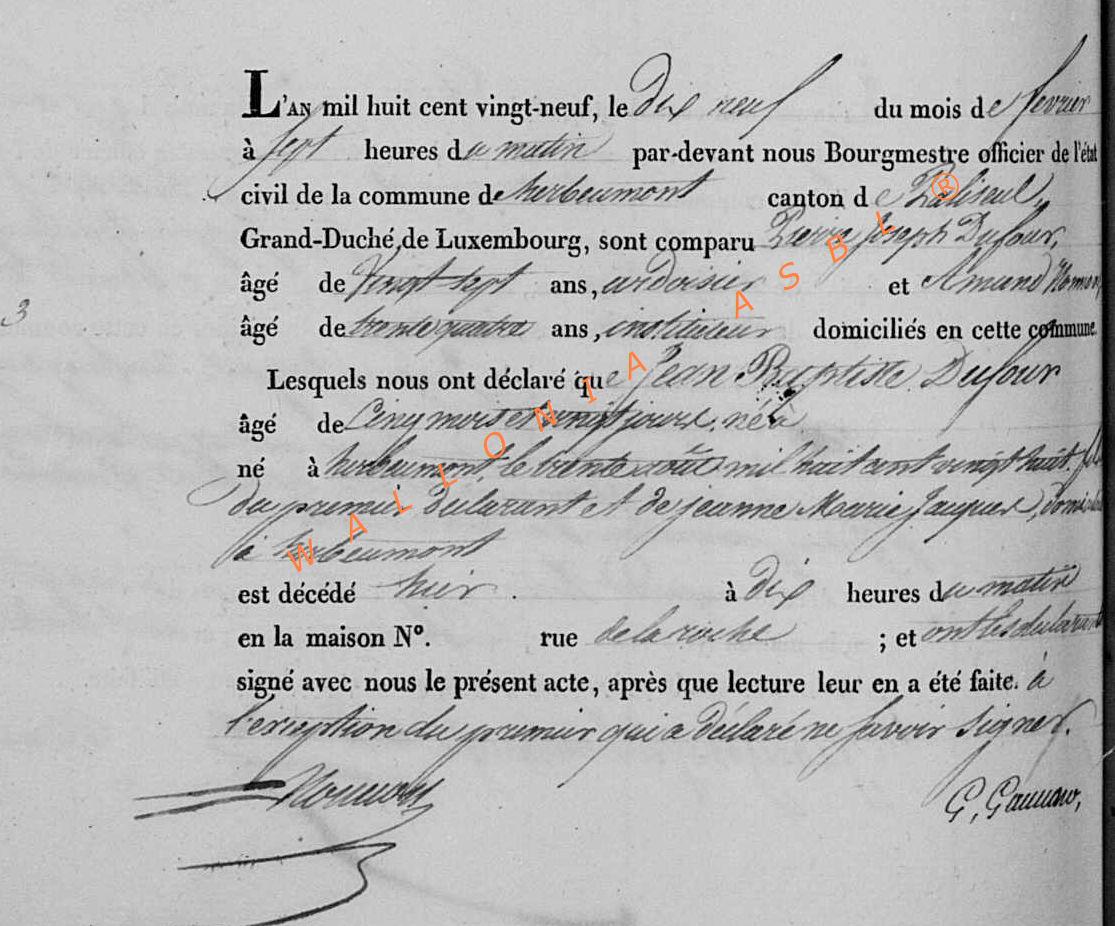 L'AN mil huit cent vingt-neuf, le dix neuf du mois de fevrier
à sept heures du matin par-devant nous Bourgmestre officier de l'état
civil de la commune de herbeumont canton de Paliseul,
Grand-Duché de Luxembourg, sont comparu Pierre Joseph Dufour,
âgé de vingt sept ans, ardoisier et Amand
3
âgé de trente quatre ans, instituteur domiciliés en cette commune.
Lesquels nous ont déclaré que Jean Baptiste Dufour
âgé de Cinq mois et vingt jours. né à
né à herbeumont, le trente août mil huit cent vingt huit. fils
du premier declarant et de jeanne Marie Jacques, domiciliés
à herbeumont
est décédé hier. à dix heures du matin
en la maison N°. rue de la roche ; et ont les declarants
signé avec nous le présent acte, après que lecture leur en a été faite. à
l'exception du premier qui a déclaré ne savoir signer.
G.
WALLONIA ASBL ®